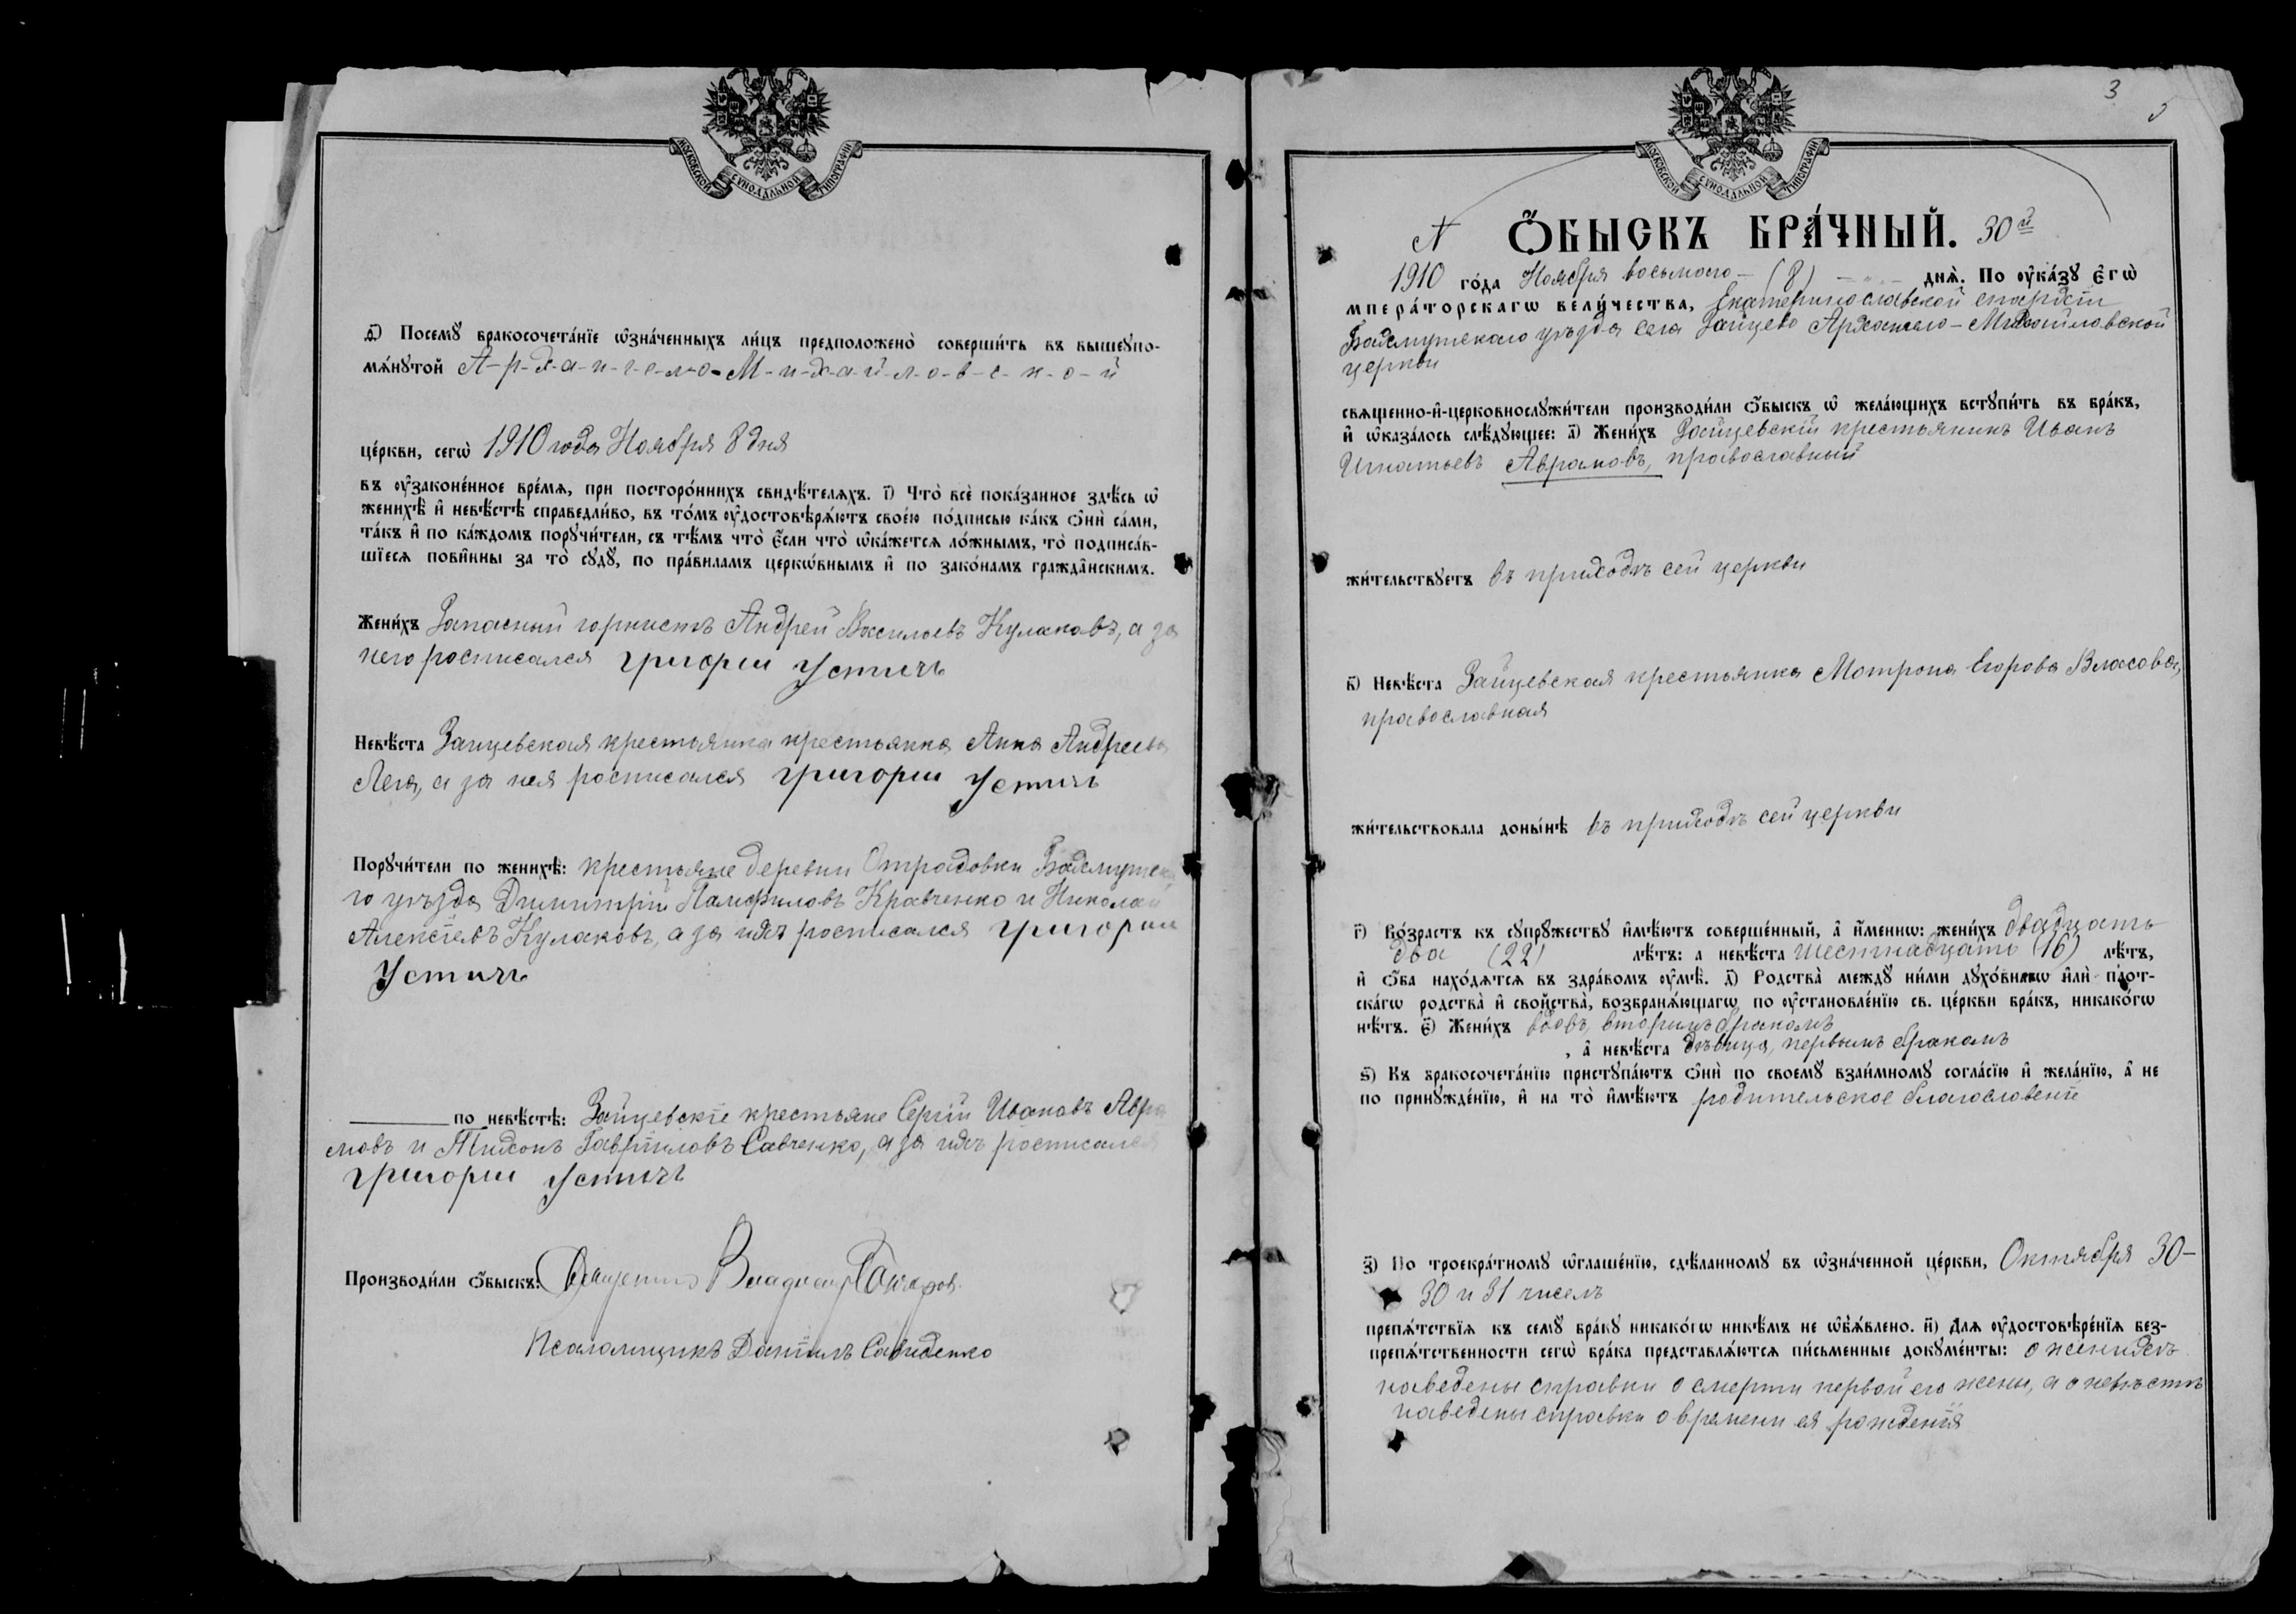 МОСКОВСКОЙ СѴНОДАЛЬНОЙ ТИПОГРАФІИ
д҃) Посемꙋ̀ бракосочета́нїе ѡ҆зна́ченныхъ ли́цъ предположено̀ соверши́ть въ вышеꙋпо-
мѧ́нꙋтой А-р-х-а-н-г-е-л-о-М-и-х-а-й-л-о-в-с-к-о-й
це́ркви, сегѡ̀ 1910 года Ноября 8 дня
въ ᲂу҆законе́нное вре́мѧ, при посторо́ннихъ свидѣ́телѧхъ. і҃) Что̀ всѐ пока́занное здѣ́сь ѡ҆
женихѣ̀ и҆ невѣ́стѣ справедли́во, въ то́мъ ᲂу҆достовѣрѧ́ютъ свое́ю по́дписью ка́къ ѻ҆нѝ са́ми,
та́къ и҆ по ка́ждомъ порꙋчи́тели, съ тѣ́мъ что̀ є҆́сли что̀ ѡ҆ка́жетсѧ ло́жнымъ, то̀ подписа́в-
шїесѧ пови́нны за то̀ сꙋдꙋ̀, по пра́виламъ церкѡ́внымъ и҆ по зако́намъ гражда́нскимъ.
Жени́хъ Запасный горнистъ Андрей Васильевъ Кулаковъ, а за
него росписался Григории Устичъ
Невѣ́ста Зайцевская крестьянка крестьянка Анна Андреева
Лега, а за нея росписался Григории Устичъ
Порꙋчи́тели по женихѣ̀: крестьяне деревни Отрадовки Бахмутска
го уѣзда Димитрій Памфиловъ Кравченко и Николай
Алексѣевъ Кулаковъ, а за ихъ росписался Григории
Устичъ
по невѣ́стѣ: Зайцевскіе крестьяне Сергій Ивановъ Авра
мовъ и Тихонъ Гавріиловъ Савченко, а за ихъ росписался
Григории Устичъ
Производи́ли ѻ҆́быскъ: Священникъ Владимир
Псаломщикъ Даніилъ
3
5
МОСКОВСКОЙ СѴНОДАЛЬНОЙ ТИПОГРАФІИ
N Ѻ҆́БЫСКЪ БРА́ЧНЫЙ. 30й
1910 го́да Ноября восьмого - (8) - „ - днѧ̀. По ᲂу҆ка́зꙋ є҆гѡ̀
мпера́торскагѡ вели́чества, Екатеринославской епархіи
Бахмутскаго уѣзда села Зайцево Архангело-Михайловской
церкви
свѧщенно-и҆-церковнослꙋжи́тели производи́ли ѻ҆́быскъ ѡ҆ жела́ющихъ встꙋпи́ть въ бра́къ,
и҆ ѡ҆каза́лось слѣ́дꙋющее: а҃) Жени́хъ Зайцевскій крестьянинъ Иванъ
Игнатьевъ Аврамовъ, православный
жи́тельствꙋетъ въ приходѣ сей церкви
в҃) Невѣ́ста Зайцевская крестьянка Мотрона Егорова Власова,
православная
жи́тельствовала доны́нѣ въ приходѣ сей церкви
г҃) Во́зрастъ къ сꙋпрꙋ́жествꙋ и҆мѣ́ютъ соверше́нный, а҆ и҆́меннѡ: жени́хъ двадцать
два (22) лѣ́тъ: а невѣ́ста шестнадцать (16) лѣ́тъ,
и҆ ѻ҆́ба нахо́дѧтсѧ въ здра́вомъ ᲂу҆мѣ̀. д҃) Родства̀ междꙋ̀ ни́ми дꙋхо́внагѡ и҆лѝ плот-
ска́гѡ родства̀ и҆ сво́йства̀, возбранѧ́ющагѡ по ᲂу҆становле́нїю св. це́ркви бра́къ, никако́гѡ
нѣ́тъ. є҃) Жени́хъ вдовъ, вторымъ бракомъ
, а҆ невѣ́ста дѣвица, первымъ бракомъ
ѕ҃) Къ бракосочета́нїю пристꙋпа́ютъ ѻ҆нѝ по своемꙋ̀ взаи́мномꙋ согла́сїю и҆ жела́нїю, а҆ не
по принꙋжде́нїю, и҆ на то̀ и҆мѣ́ютъ родительское благословеніе
з҃) По троекра́тномꙋ ѡ҆глаше́нїю, сдѣ́ланномꙋ въ ѡ҆зна́ченной це́ркви, Октября 30-
30 и 31 числъ
препѧ́тствїѧ къ семꙋ̀ бра́кꙋ никако́гѡ никѣ́мъ не ѡ҆б̾ѧ́влено. и҃) Длѧ ᲂу҆достовѣре́нїѧ без-
препѧ́тственности сегѡ̀ бра́ка представлѧ́ютсѧ пи́сьменные докꙋме́нты: о женихѣ
наведены справки о смерти первой его жены, а о невѣстѣ
наведены справки о времени ея рожденія